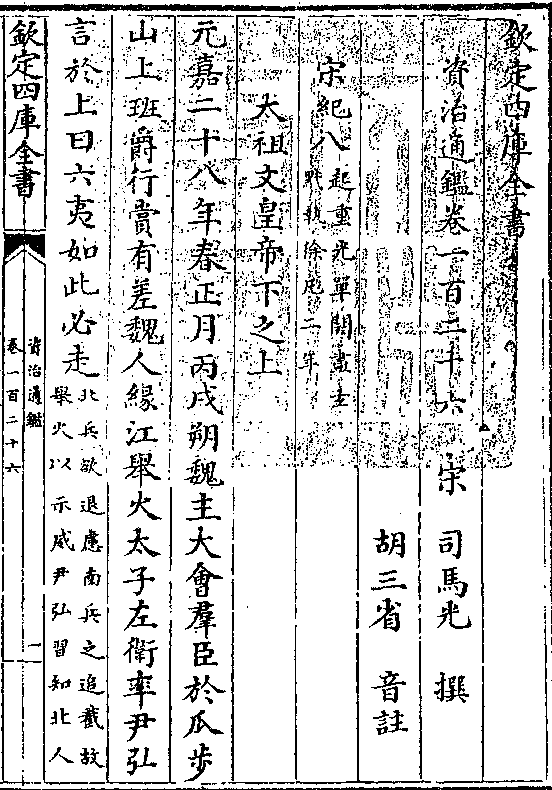 欽定四庫全書
資治通鑑卷一百二十六
宋 司馬光 撰
胡三省 音註
宋紀八起重光單閼盡玄
黓執徐凡二年
太祖文皇帝下之上
元嘉二十八年春正月丙戌朔魏主大會羣臣於瓜步
山上班爵行賞有差魏人緣江舉火太子左衛率尹弘
言於上曰六夷如此必走北兵欲退慮南兵之追截故
舉火以示威尹弘習知北人
欽定四庫全書
資治通鑑
卷一百二十六
一